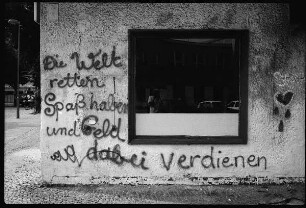 Die Welt
retten!
Spaß haben
und Geld
dabei verdienen